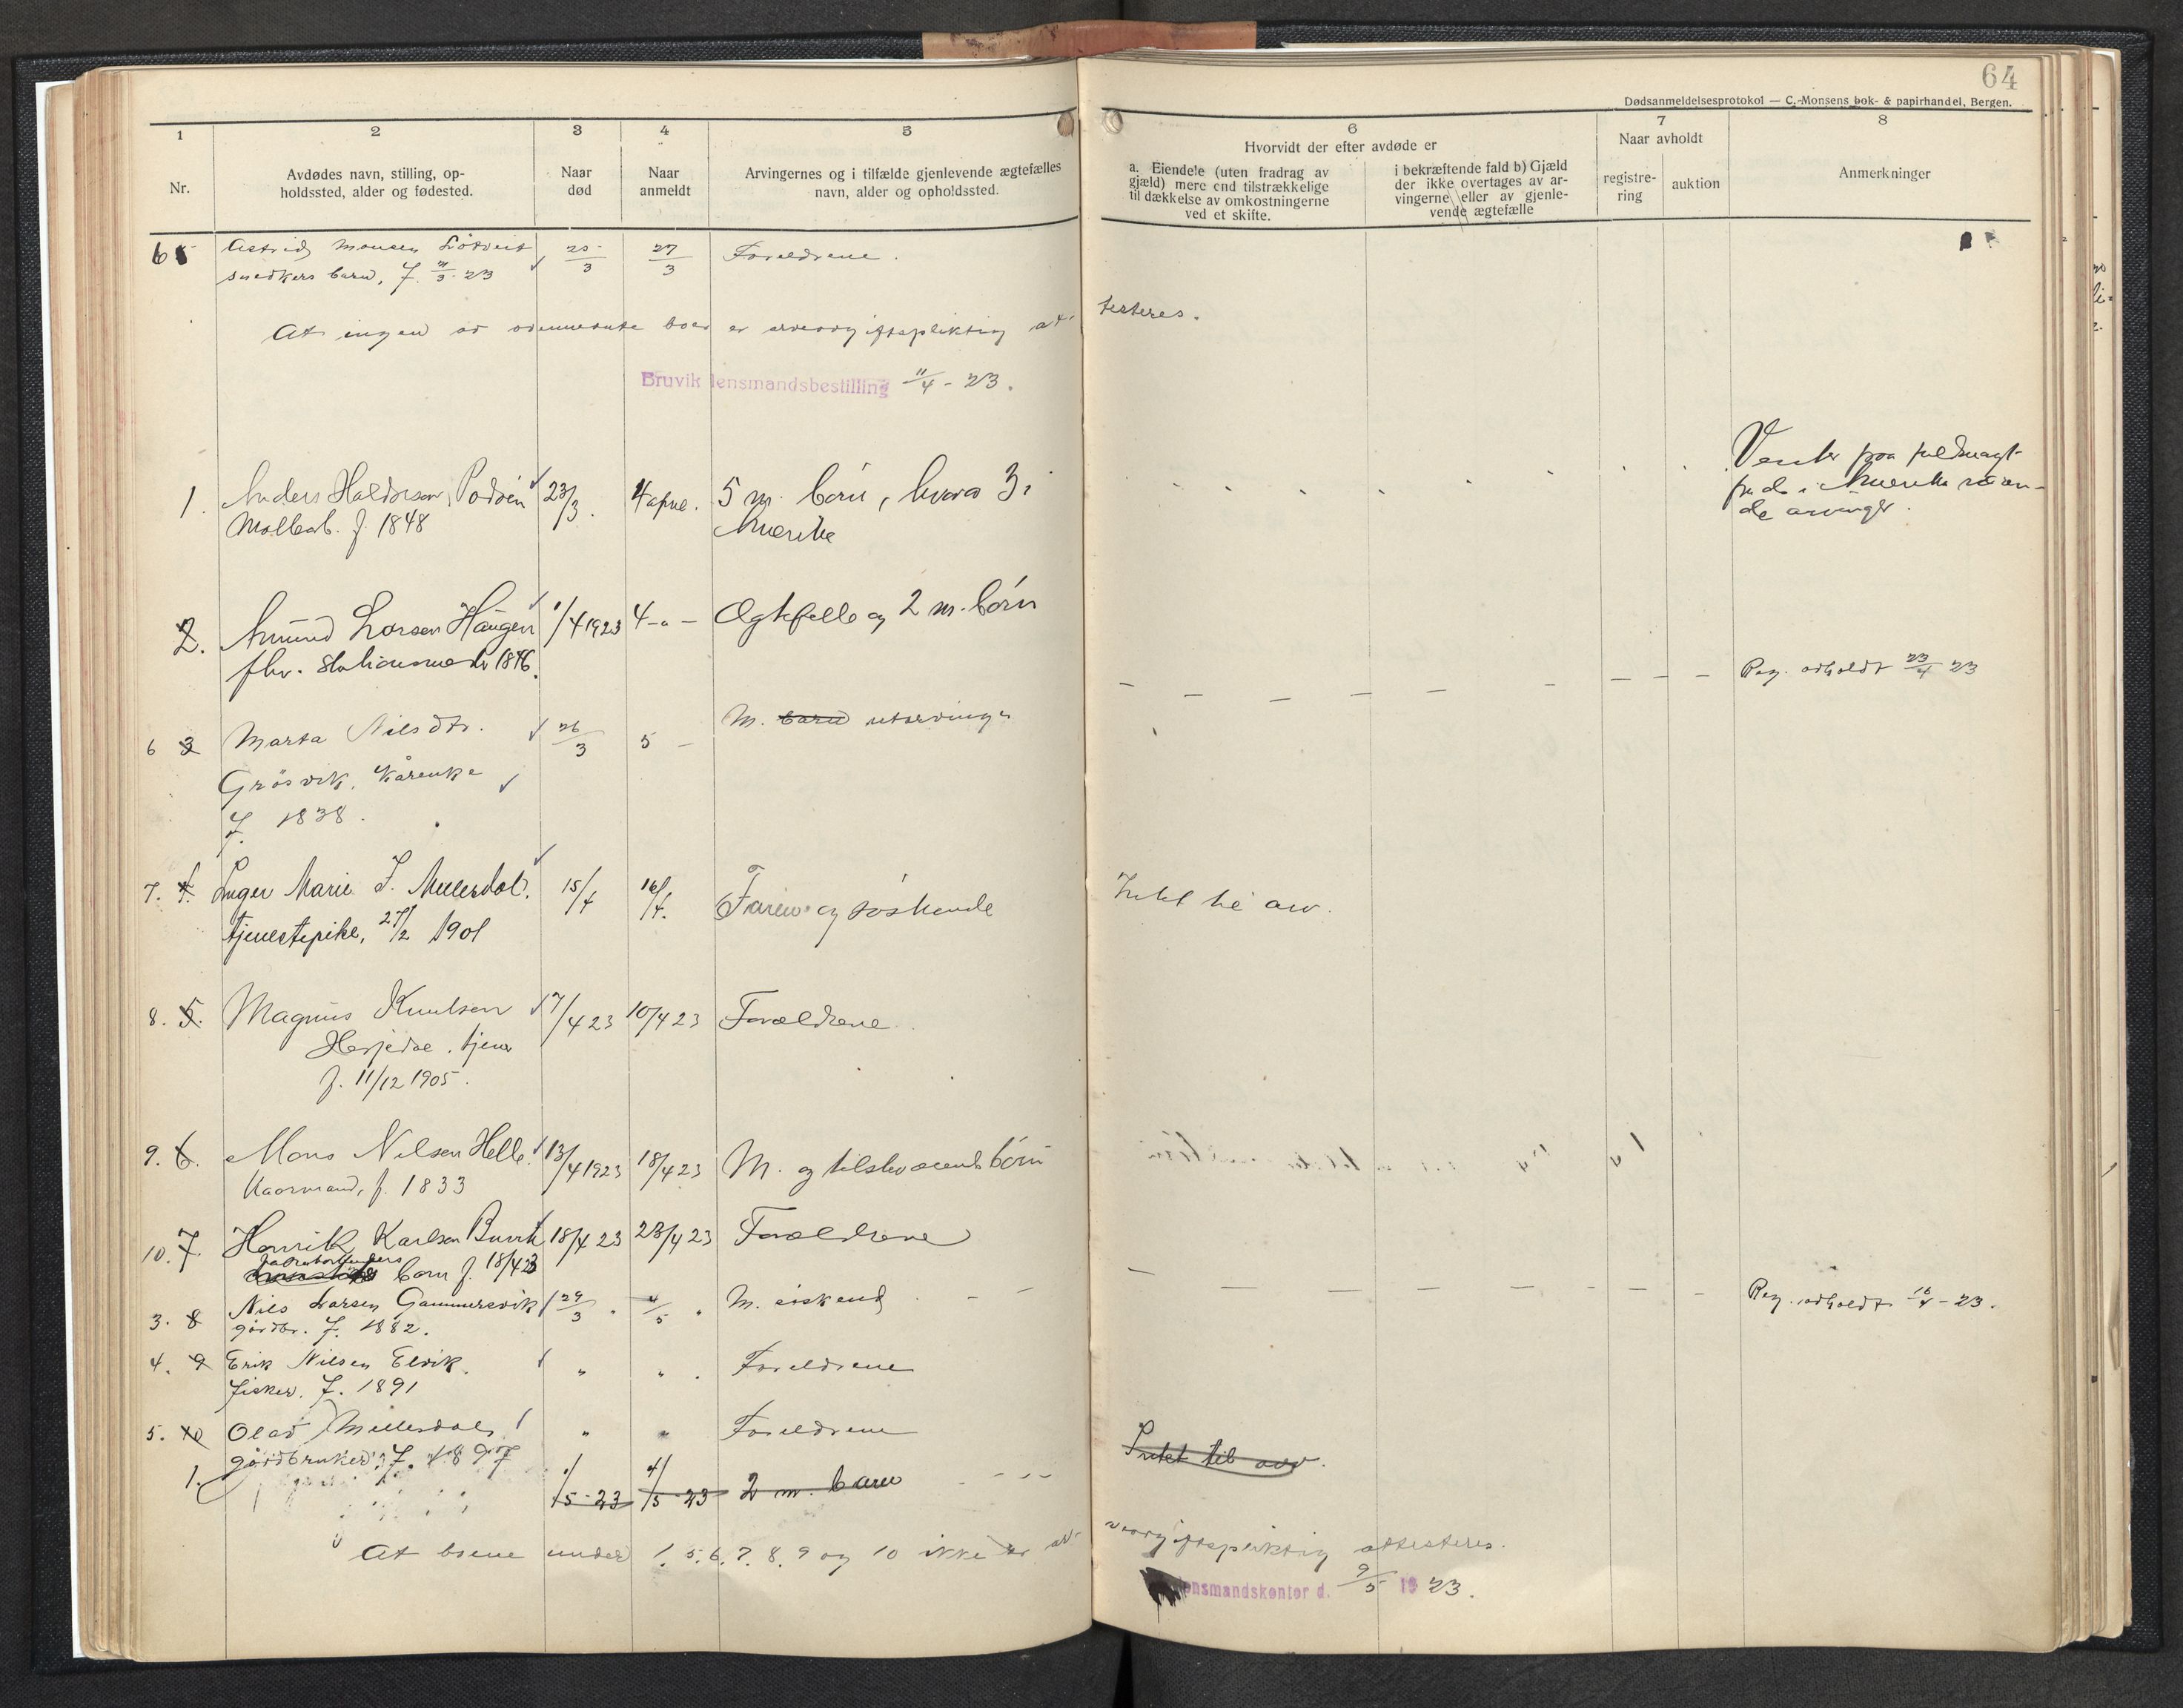 64
Dødsanmeldelsesprotokol — C. Monsens bok- & papirhandel, Bergen.
1
2
3
4
5
6
7
8
Nr.
Avdødes navn, stilling, op-
holdssted, alder og fødested.
Naar
død
Naar
anmeldt
Arvingernes og i tilfælde gjenlevende ægtefælles
navn, alder og opholdssted.
Hvorvidt der efter avdøde er
a. Eiendele (uten fradrag av
gjæld) mere end tilstrækkelige
til dækkelse av omkostningerne
ved et skifte.
i bekræftende fald b) Gjæld
der ikke overtages av ar-
vingerne eller av gjenle-
vende ægtefælle
Naar avholdt
registre-
ring
auktion
Anmerkninger
Astrid Monsen Løtveit 25/3 27/3 Foreldrene.
snedkers barn, f. /3-23
At ingen av ovennevnte boer er arveavgiftspliktig attesteres.
Bruvik lensmandsbestilling 11/4-23.
1. Anders Haldorsen 23/3. 4 april. 5 m. børn, hvorav 3 i
f. 1848 Amerika
Venter paa fuldmagt
fra de i Amerika væren-
de arvinger.
2. Amund Larsen Haugen 1/4 1923 4 -"- Ægtefelle og 2 m. børn
fhv. stationsmester 1846.
Reg. avholdt 23/4 23
6 3 Marta Nilsdtr. 26/3 5 - M. barn utarvinger
Grøsvik, kårenke
f. 1838.
7. 4. Inger Marie I. Mulerdal. 15/4 16/4. Faren og søskende Intet til arv.
tjenestepike, 27/2 1901
8. 5. Magnus Knutsen 17/4 23 10/4 23 Forældrene
Herfjedal, tjener
f. 11/12 1905.
9. 6. Mons Nilsen Helle 13/4 1923 18/4 23 M. og tilstedværende børn
Kaarmand, f. 1833
10. 7. Henrik Karlsen Bruvik 18/4 23 23/4 23 Forældrene
barn f. 18/4 23
3. 8 Nils Larsen Gammersvik 29/3 4/5 M. søskend
gårdbr. f. 1882.
Reg. avholdt 16/4-23.
4. 9 Erik Nilsen Elvik " " Foreldrene
fisker. f. 1891
5. 10 Olav Mulerdal " " Foreldrene
gårdbruker, f. 1897
1. 1/5-23 4/5-23 2 m. barn Intet til arv.
At boene under 1, 5, 6, 7, 8, 9 og 10 ikke er arveavgiftspliktig attesteres.
lensmandskontor d. 9/5 19 23.